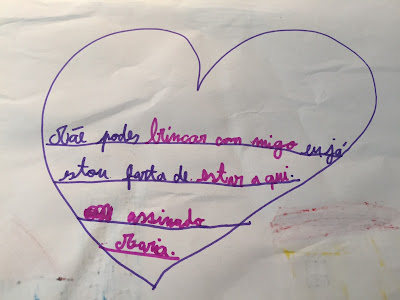 Mãe podes brincar con migo eu já
estou farta de estar a qui.
assinado
Maria.